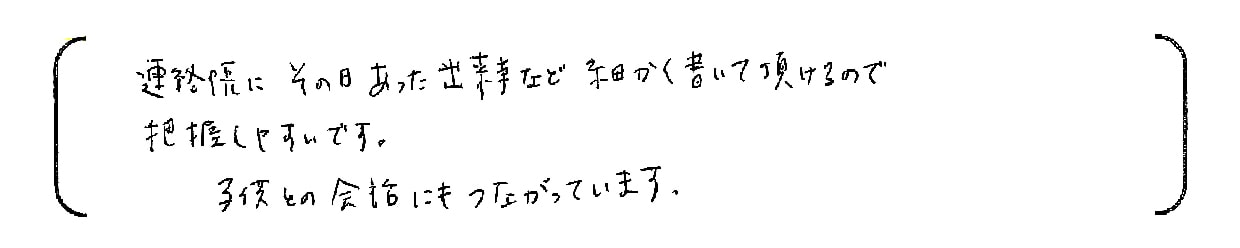 連絡帳にその日あった出来事など細かく書いて頂けるので
把握しやすいです。
子供との会話にもつながっています。